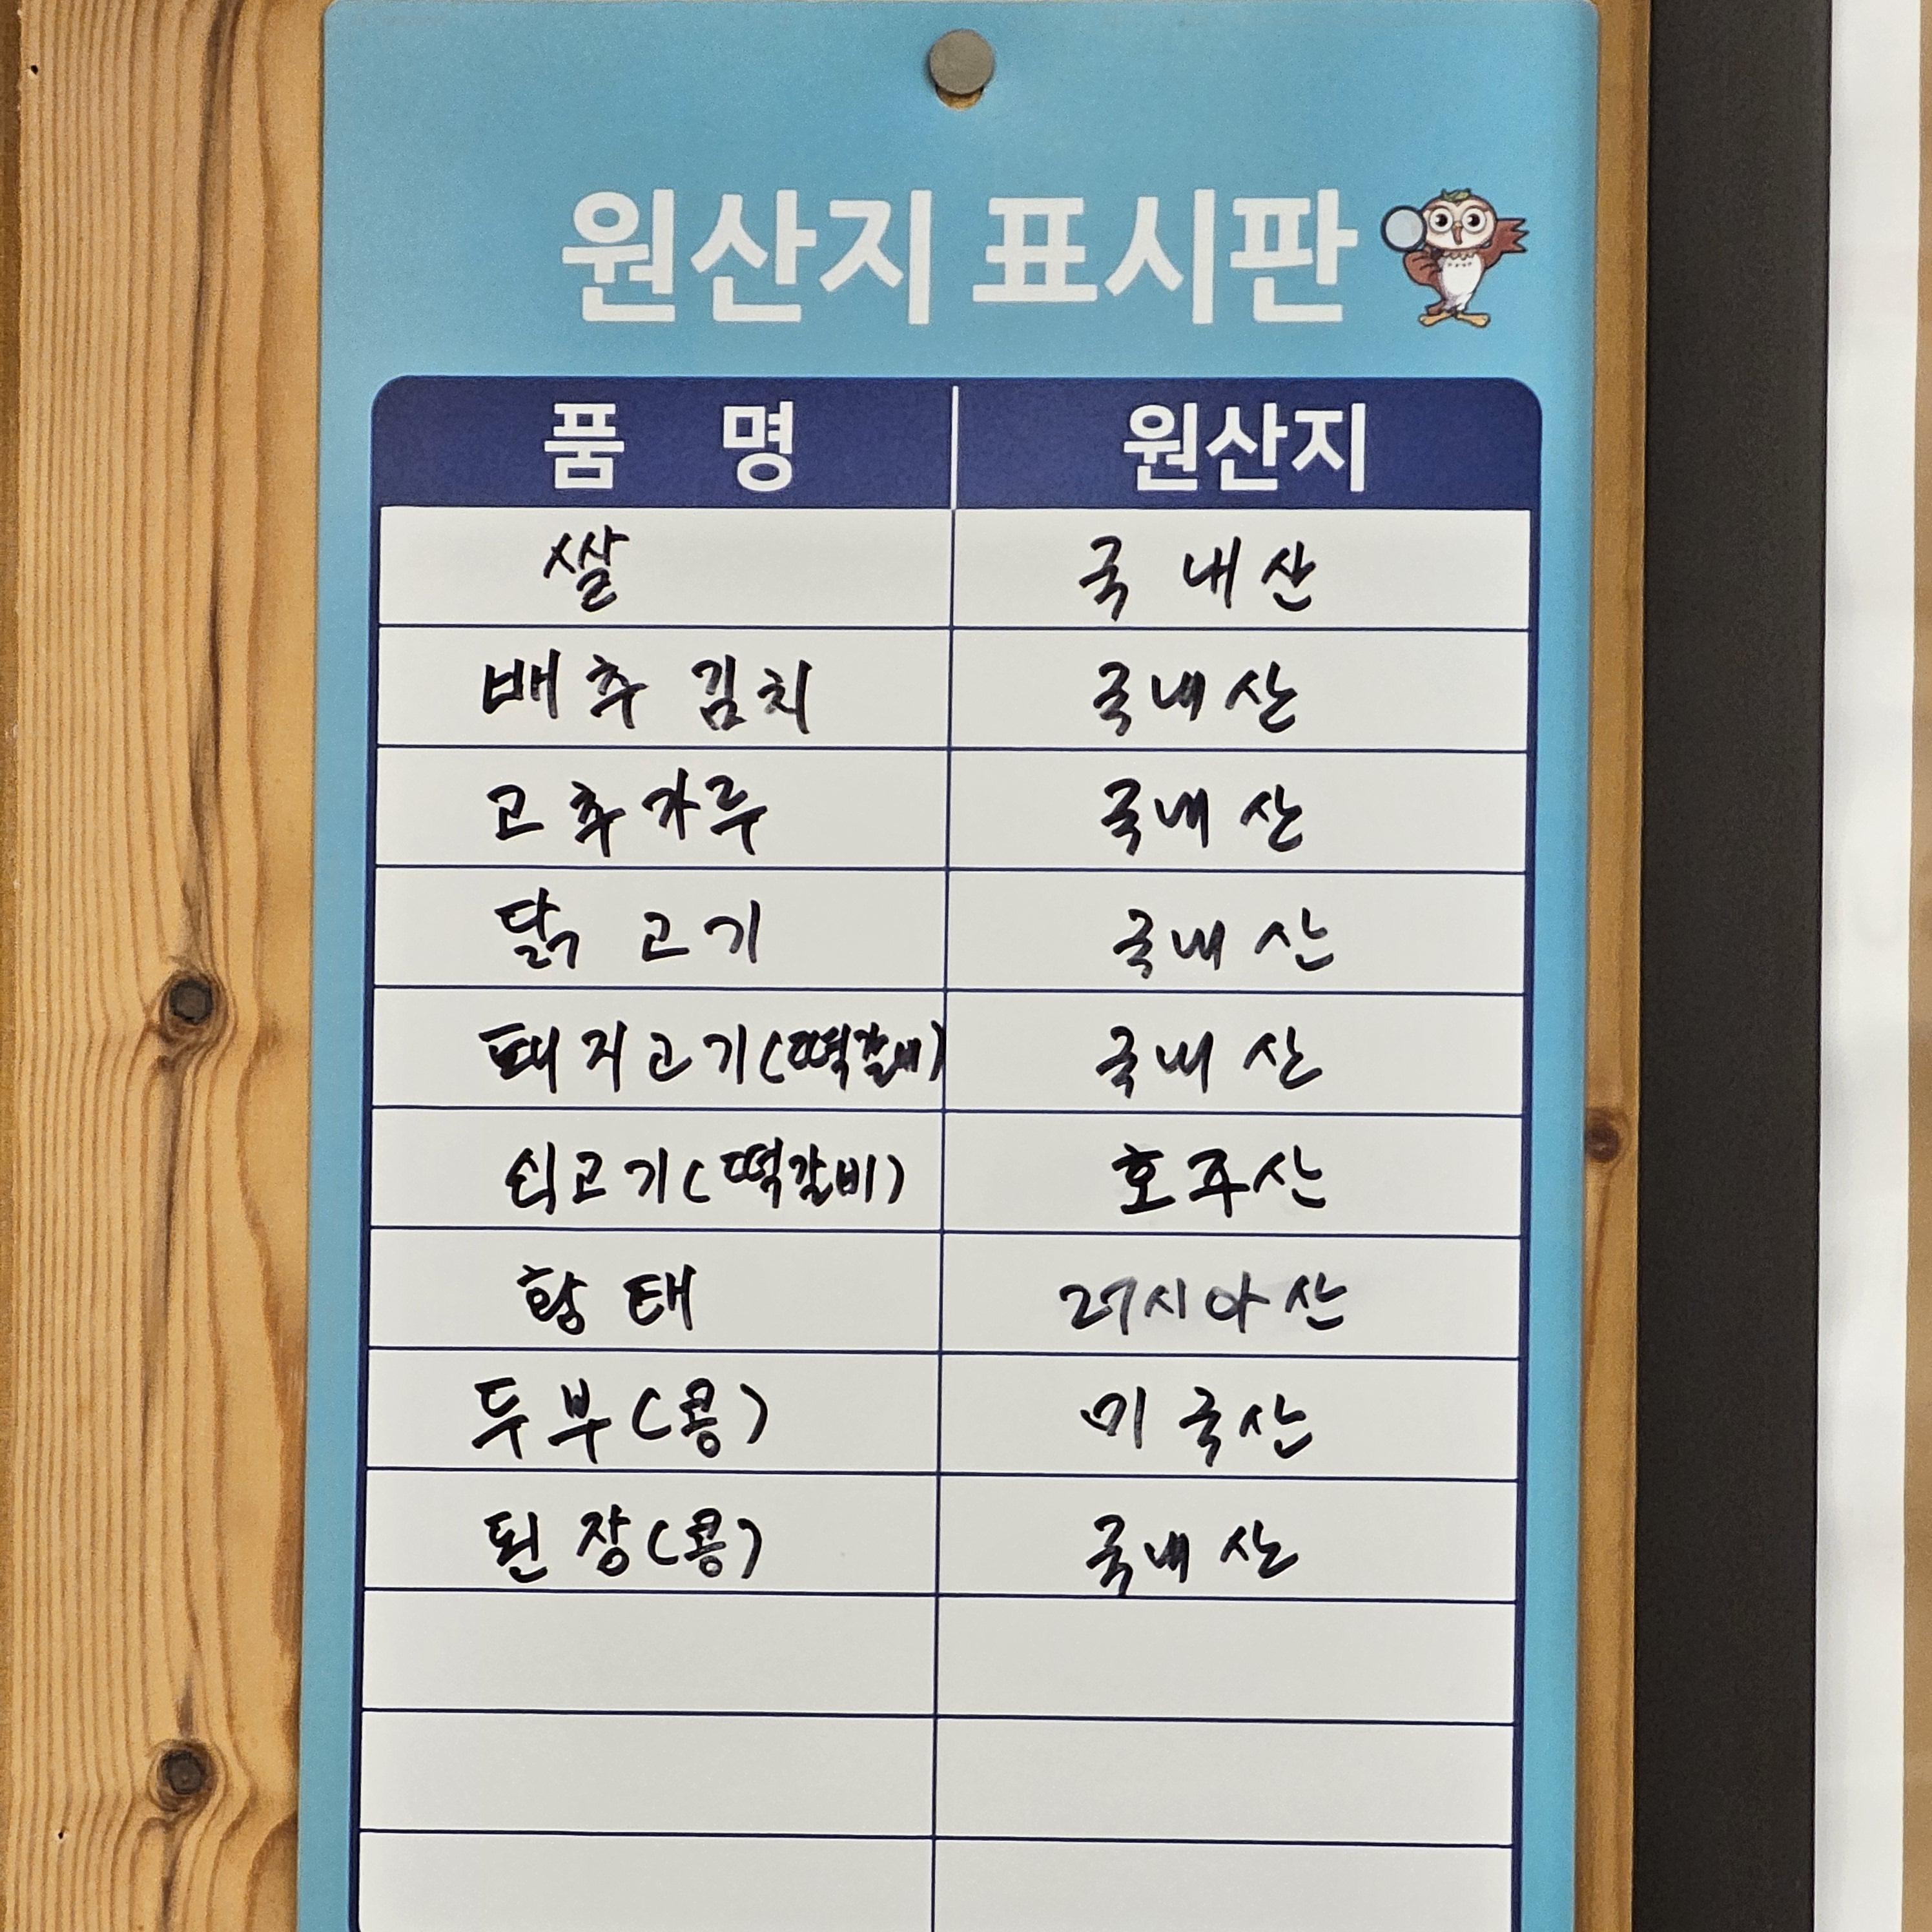 원산지 표시판
품 명 원산지
쌀 국내산
배추 김치 국내산
고추가루 국내산
닭 고기 국내산
돼지고기(떡갈비) 국내산
쇠고기(떡갈비) 호주산
황태 러시아산
두부(콩) 미국산
된장(콩) 국내산